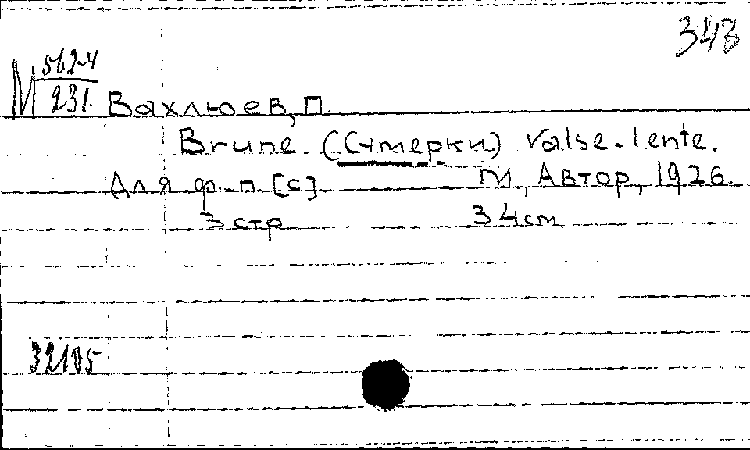 343
М 562-4
231 Вахлюев, П.
Brune. (Сумерки) Valse-lente.
Для ф.п. [c] М., Автор, 1926.
3 стр 34см
32105